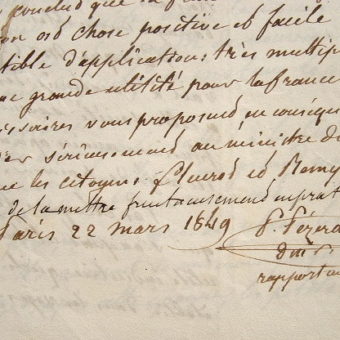 conclud que la
on est chose positive et facile
tible d'application: très multip
ue grande utilité pour la france
essaires vous proposend en conséq
er sérieusemend au ministre du
ue les citoyens et Remy
de la mettre fructueusemend en prat
Paris 22 mars 1849
rapporteu